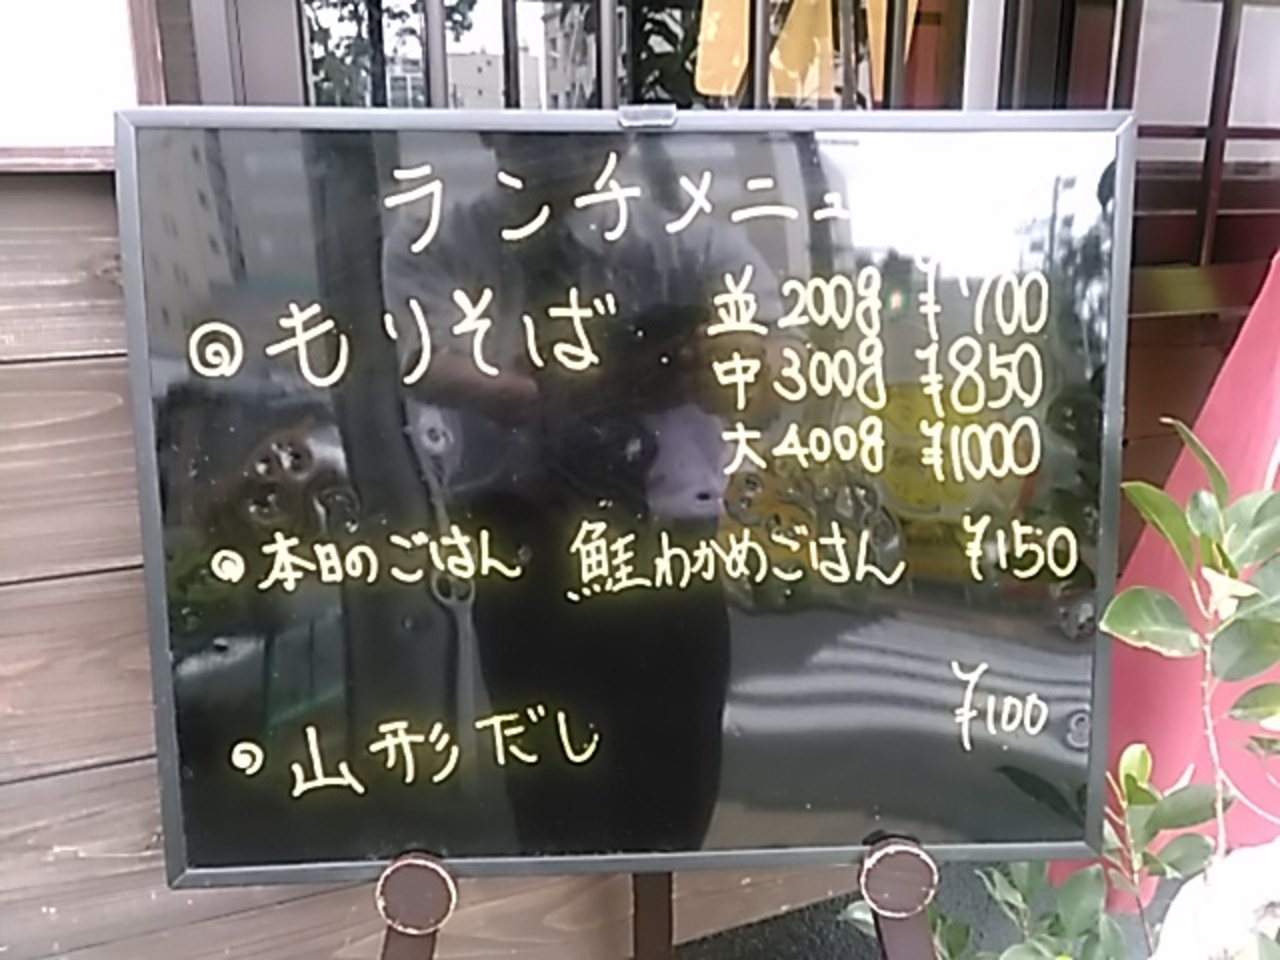 ランチメニュー
もりそば 並 200g ¥700
中 300g ¥850
大 400g ¥1000
本日のごはん 鮭わかめごはん ¥150
山形だし ¥100